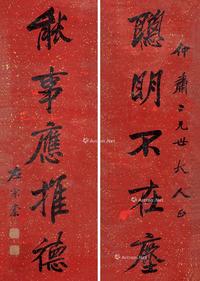 仲肅二兄世大人正
聰明不在塵
能事應推德
左宗棠
Artron.Net
Artron.Net